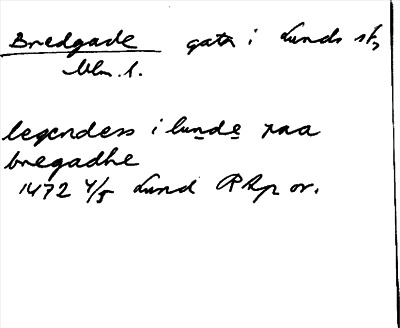 Bredgade gata i Lunds st,
Mlm. l.
legendess i lunde paa
bregadhe
1472 4/5 Lund RAp or.